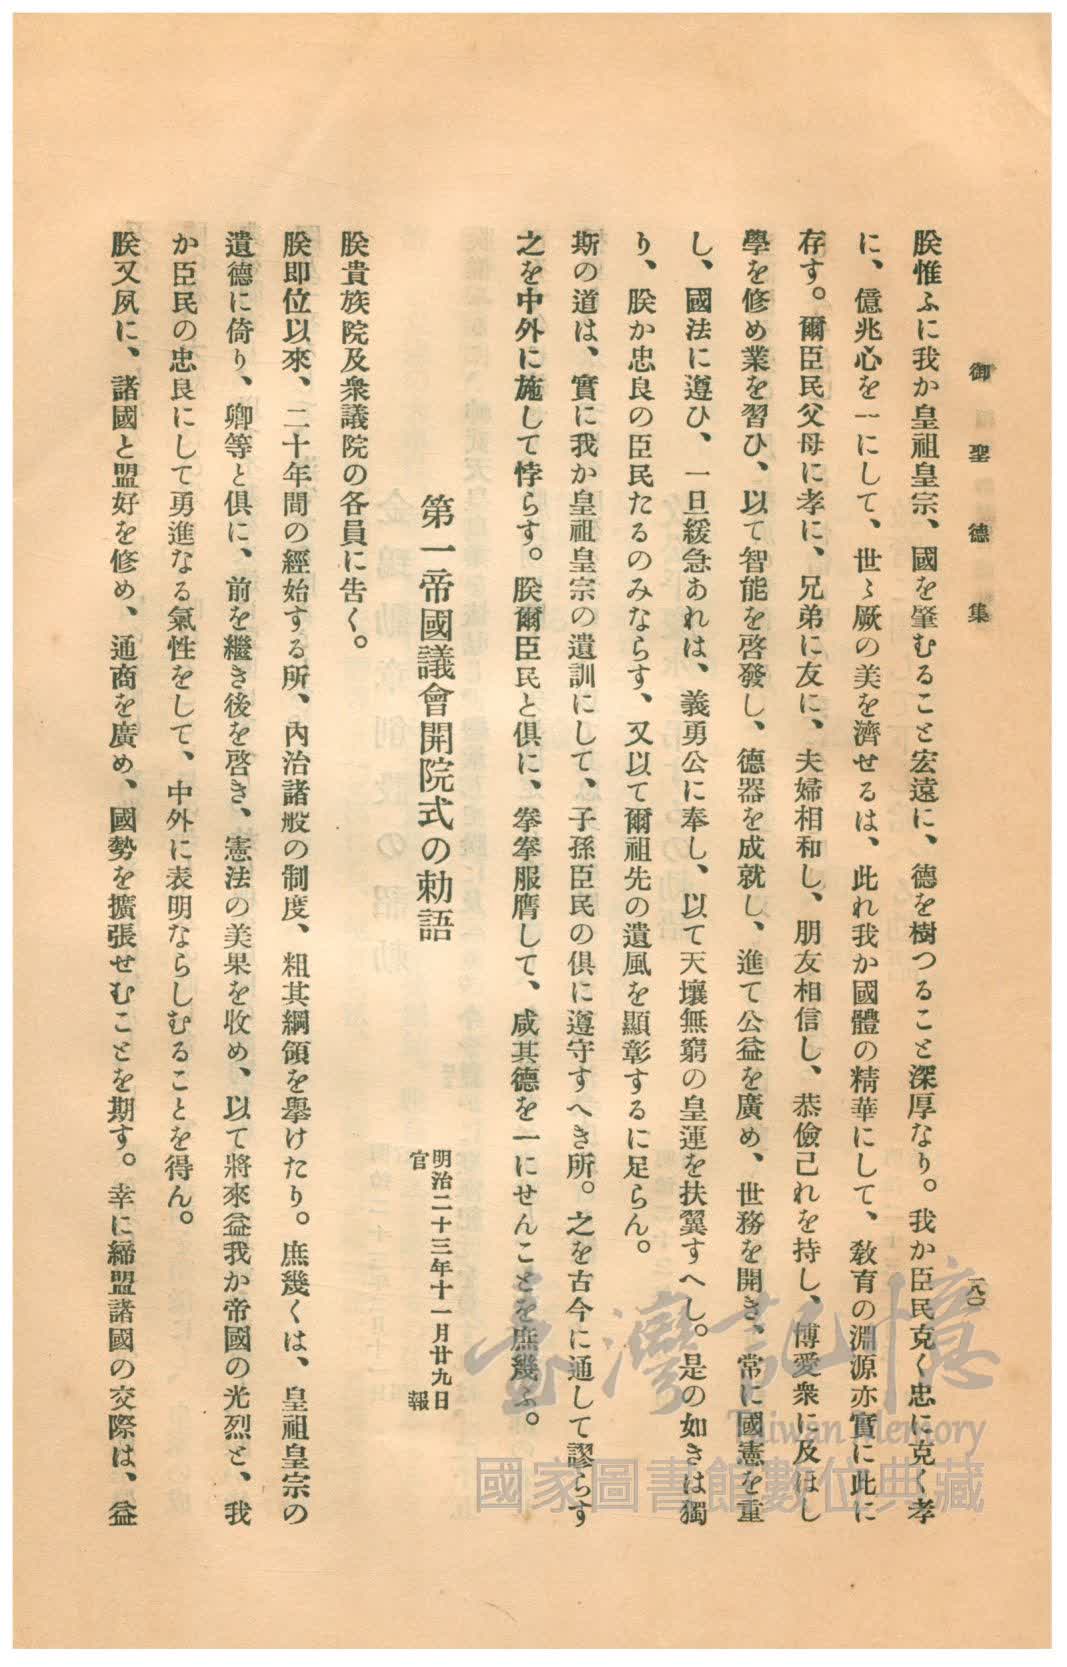 御聖德集
一八〇
朕惟ふに我か皇祖皇宗、國を肇むること宏遠に、德を樹つること深厚なり。我か臣民克く忠に克く孝
に、億兆心を一にして、世〻厥の美を濟せるは、此れ我か國體の精華にして、敎育の淵源亦實に此に
存す。爾臣民父母に孝に、兄弟に友に、夫婦相和し、朋友相信し、恭儉己れを持し、博愛衆に及ほし
學を修め業を習ひ、以て智能を啓發し、德器を成就し、進て公益を廣め、世務を開き、常に國憲を重
し、國法に遵ひ、一旦緩急あれは、義勇公に奉し、以て天壤無窮の皇運を扶翼すへし。是の如きは獨
り、朕か忠良の臣民たるのみならす、又以て爾祖先の遺風を顯彰するに足らん。
斯の道は、實に我か皇祖皇宗の遺訓にして、子孫臣民の俱に遵守すへき所。之を古今に通して謬らす
之を中外に施して悖らす。朕爾臣民と俱に、拳拳服膺して、咸其德を一にせんことを庶幾ふ。
第一帝國議會開院式の勅語
明治二十三年十一月廿九日
官報
朕貴族院及衆議院の各員に告く。
朕即位以來、二十年間の經始する所、內治諸般の制度、粗其綱領を擧けたり。庶幾くは、皇祖皇宗の
遺德に倚り、卿等と俱に、前を繼き後を啓き、憲法の美果を收め、以て將來益我か帝國の光烈と、我
か臣民の忠良にして勇進なる氣性をして、中外に表明ならしむることを得ん。
朕又夙に、諸國と盟好を修め、通商を廣め、國勢を擴張せむことを期す。幸に締盟諸國の交際は、益
臺灣記憶
Taiwan Memory
國家圖書館數位典藏